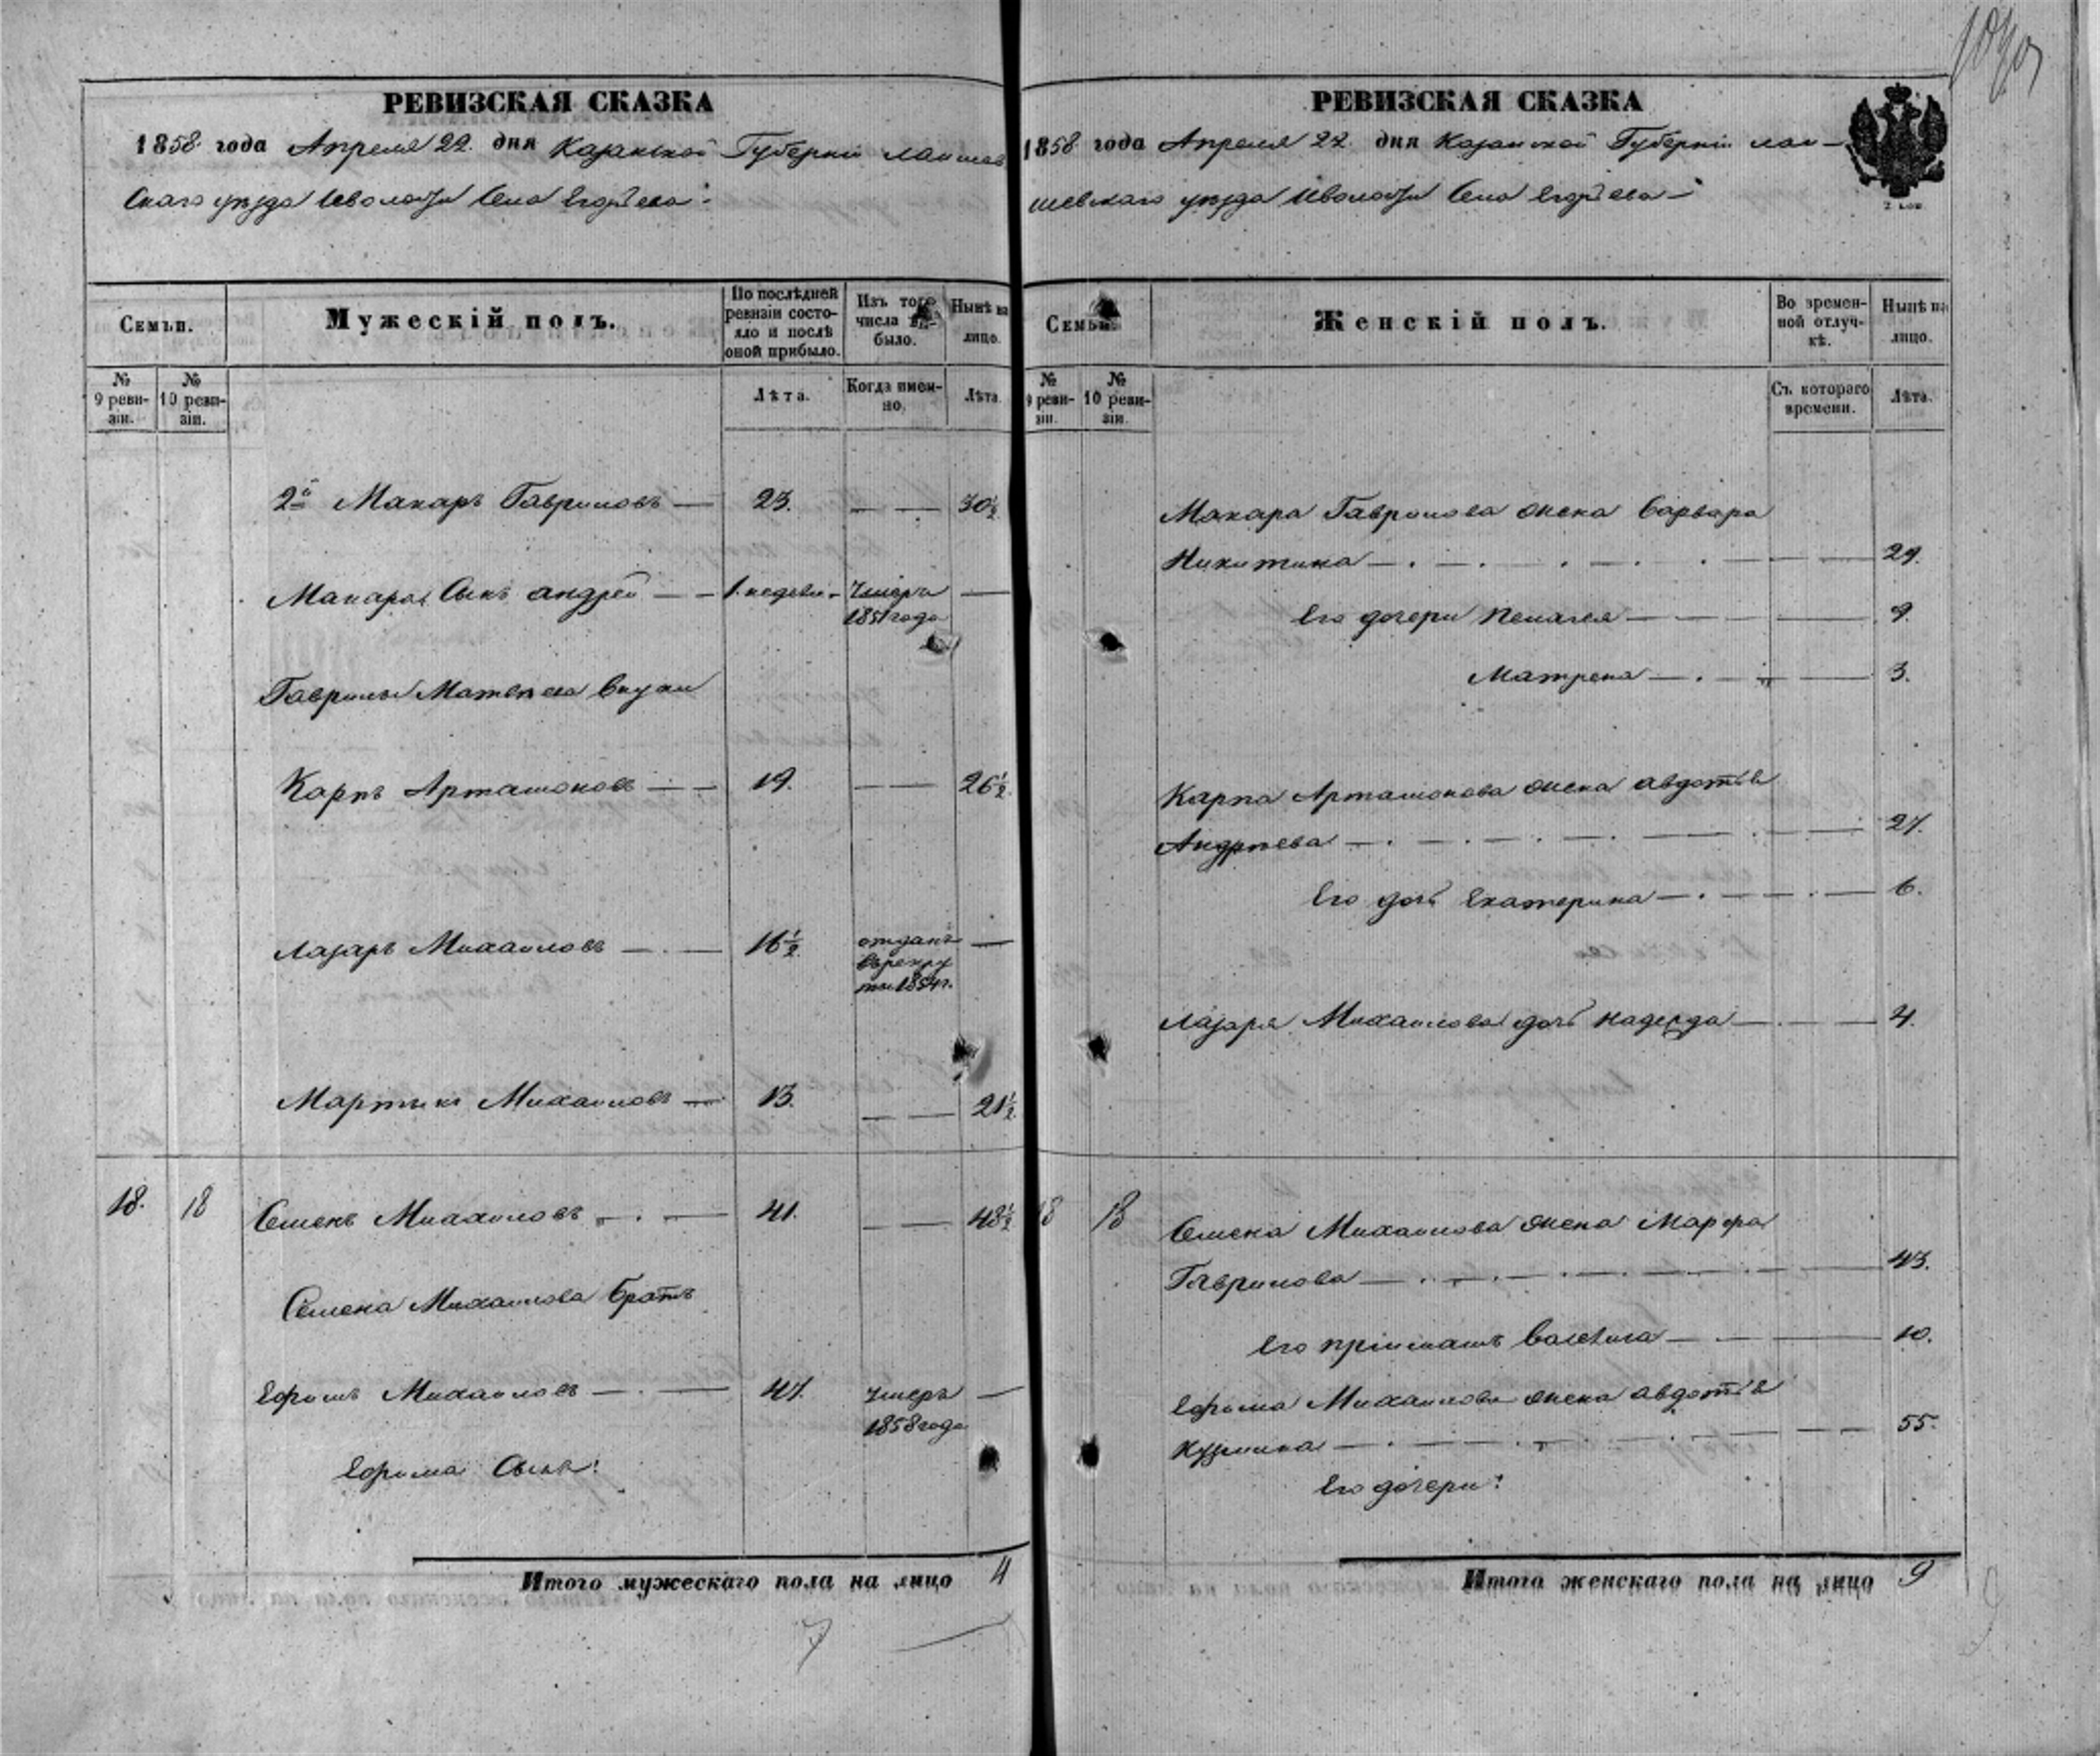 РЕВИЗСКАЯ СКАЗКА
1858 года Апреля 22 дня Казанской Губерніи Лаишев
скаго уѣзда Села Егорьева
Семьи.
Мужескій полъ.
По послѣдней ревизіи состояло и послѣ оной прибыло.
Изъ того числа выбыло.
Нынѣ на лицо.
№ 9 ревизіи.
№ 10 ревизіи.
Лѣта.
Когда именно.
Лѣта.
2й Макаръ Гавриловъ — 23. — — 30½
Макара Сынъ Андрей — — 1. недели — Умеръ —
1851 года
Гаврилы Матвѣева внуки
Карпъ Арташоновъ — — 19. — — 26½.
Лазарь Михаиловъ — . — 16½. отданъ —
въ рекру
ты 1854 г.
Мартынъ Михаиловъ — 13. — — 21½.
18. 18 Семенъ Михаиловъ — . — 41. — — 48½
Семена Михаилова братъ
Ефимъ Михаиловъ — . — 47. умеръ —
1858 года
Ефима Сынъ:
Итого мужескаго пола на лицо 4
7
РЕВИЗСКАЯ СКАЗКА
1858 года Апреля 22 дня Казанской Губерніи Лаи—
шевскаго уѣзда Села Егорьева —
2 коп.
Семьи.
Женскій полъ.
Во временной отлучкѣ.
Нынѣ на лицо.
№ 9 ревизіи.
№ 10 ревизіи.
Съ котораго времени.
Лѣта.
Макара Гаврилова жена Варвара
Никитина — . — . — . — 29.
Его дочери Пелагея — — — 9.
Матрена — . — — 3.
Карпа Арташонова жена Авдотья
Андреева — . — . — . — 27.
Его дочь Екатерина — . — — . — 6.
Лазаря Михаилова дочь Надежда — . — 4.
18 18 Семена Михаилова жена Марфа
Гаврилова — . — . — . — 43.
Его пріимашъ — . — 10.
Ефима Михаилова жена Авдотья
Кузмина — . — . — . — 55.
Его дочери:
Итого женскаго пола на лицо 9